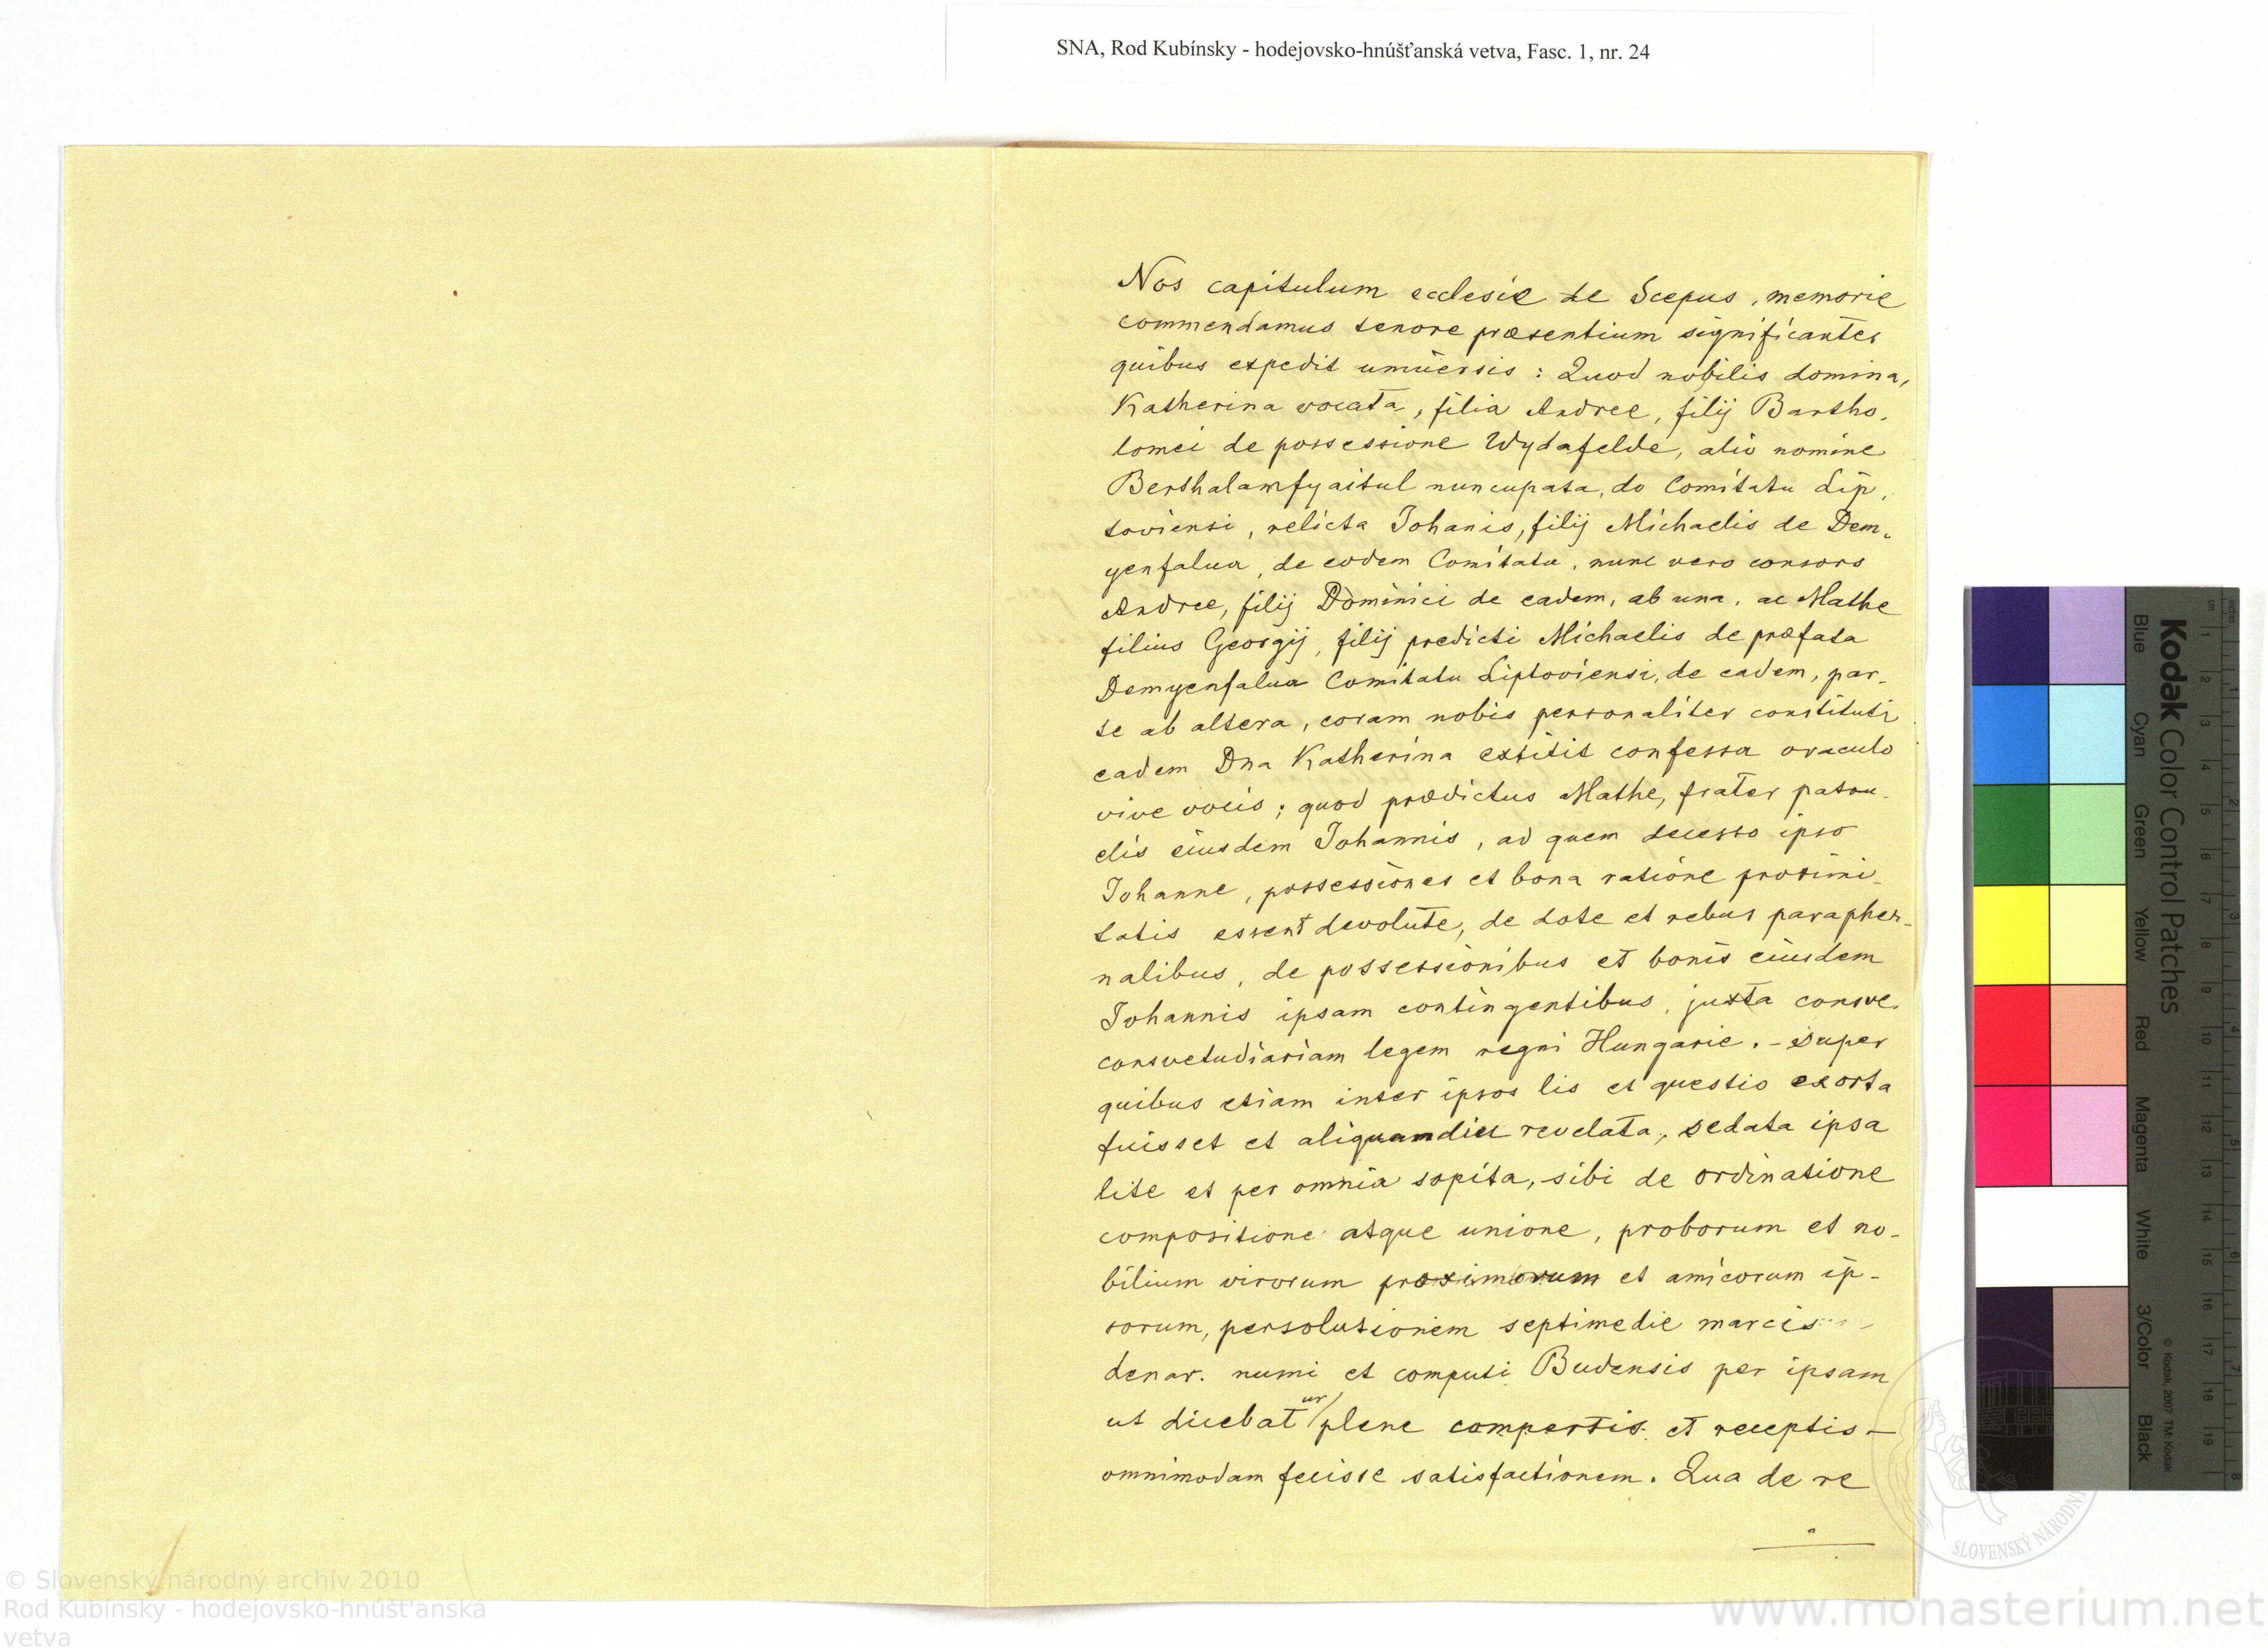 SNA, Rod Kubínsky - hodejovsko-hnúšťanská vetva, Fasc. 1, nr. 24
Nos capitulum ecclesie de Scepus, memorie
commendamus tenore præsentium significantes
quibus expedit umiiersis : Quod nobilis domina,
Katherina vocata, filia Andree, filij Bartho,
lomei de possessione Wydafelde, alio nomine
Berthalamfyaitul nuncupata, do Comitatu Lip,
toviensi, relicta Johanis, filij Michaelis de Dem,
yenfalua, de eodem Comitatu, nunc vero consors
Andree, filij Dominici de eadem, ab una, ac Mathe
filius Georgij, filij predicti Michaelis de præfata
Demyenfalua Comitatu Liptoviensi, de eadem, par-
te ab altera, coram nobis personaliter constituti
eadem Dna Katherina extitit confessa oraculo
vive vocis ; quod prædictus Mathe, frater patru-
elis eiusdem Johannis, ad quem decesso ipso
Johanne, possessiones et bona ratione proximi-
tatis essent devolute, de dote et rebus parapher-
nalibus, de possessionibus et bonis eiusdem
Johannis ipsam contingentibus, juxta consve.
consvetudiariam legem regni Hungarie. - Super
quibus etiam inter ipsos lis et questio exorta
fuisset et aliquamdiu revelata, sedata ipsa
lite et per omnia sopita, sibi de ordinatione
compositione atque unione, proborum et no-
bilium virorum proximorum et amicorum ip-
sorum, persolutionem septimedie marcis
denar. numi et computi Budensis per ipsam
ut dicebatur plene compertis et receptis -
omnimodam fecisse satisfactionem. Qua de re
Kodak Color Control Patches
Blue Cyan Green Yellow Red Magenta White 3/Color Black
© Kodak, 2007 TM: Kodak
cm 1 2 3 4 5 6 7 8 9 10 11 12 13 14 15 16 17 18 19
inches 1 2 3 4 5 6 7 8
SLOVENSKÝ NÁRODNÝ
© Slovenský národný archív 2010
Rod Kubínsky - hodejovsko-hnúšťanská
vetva
www.monasterium.net